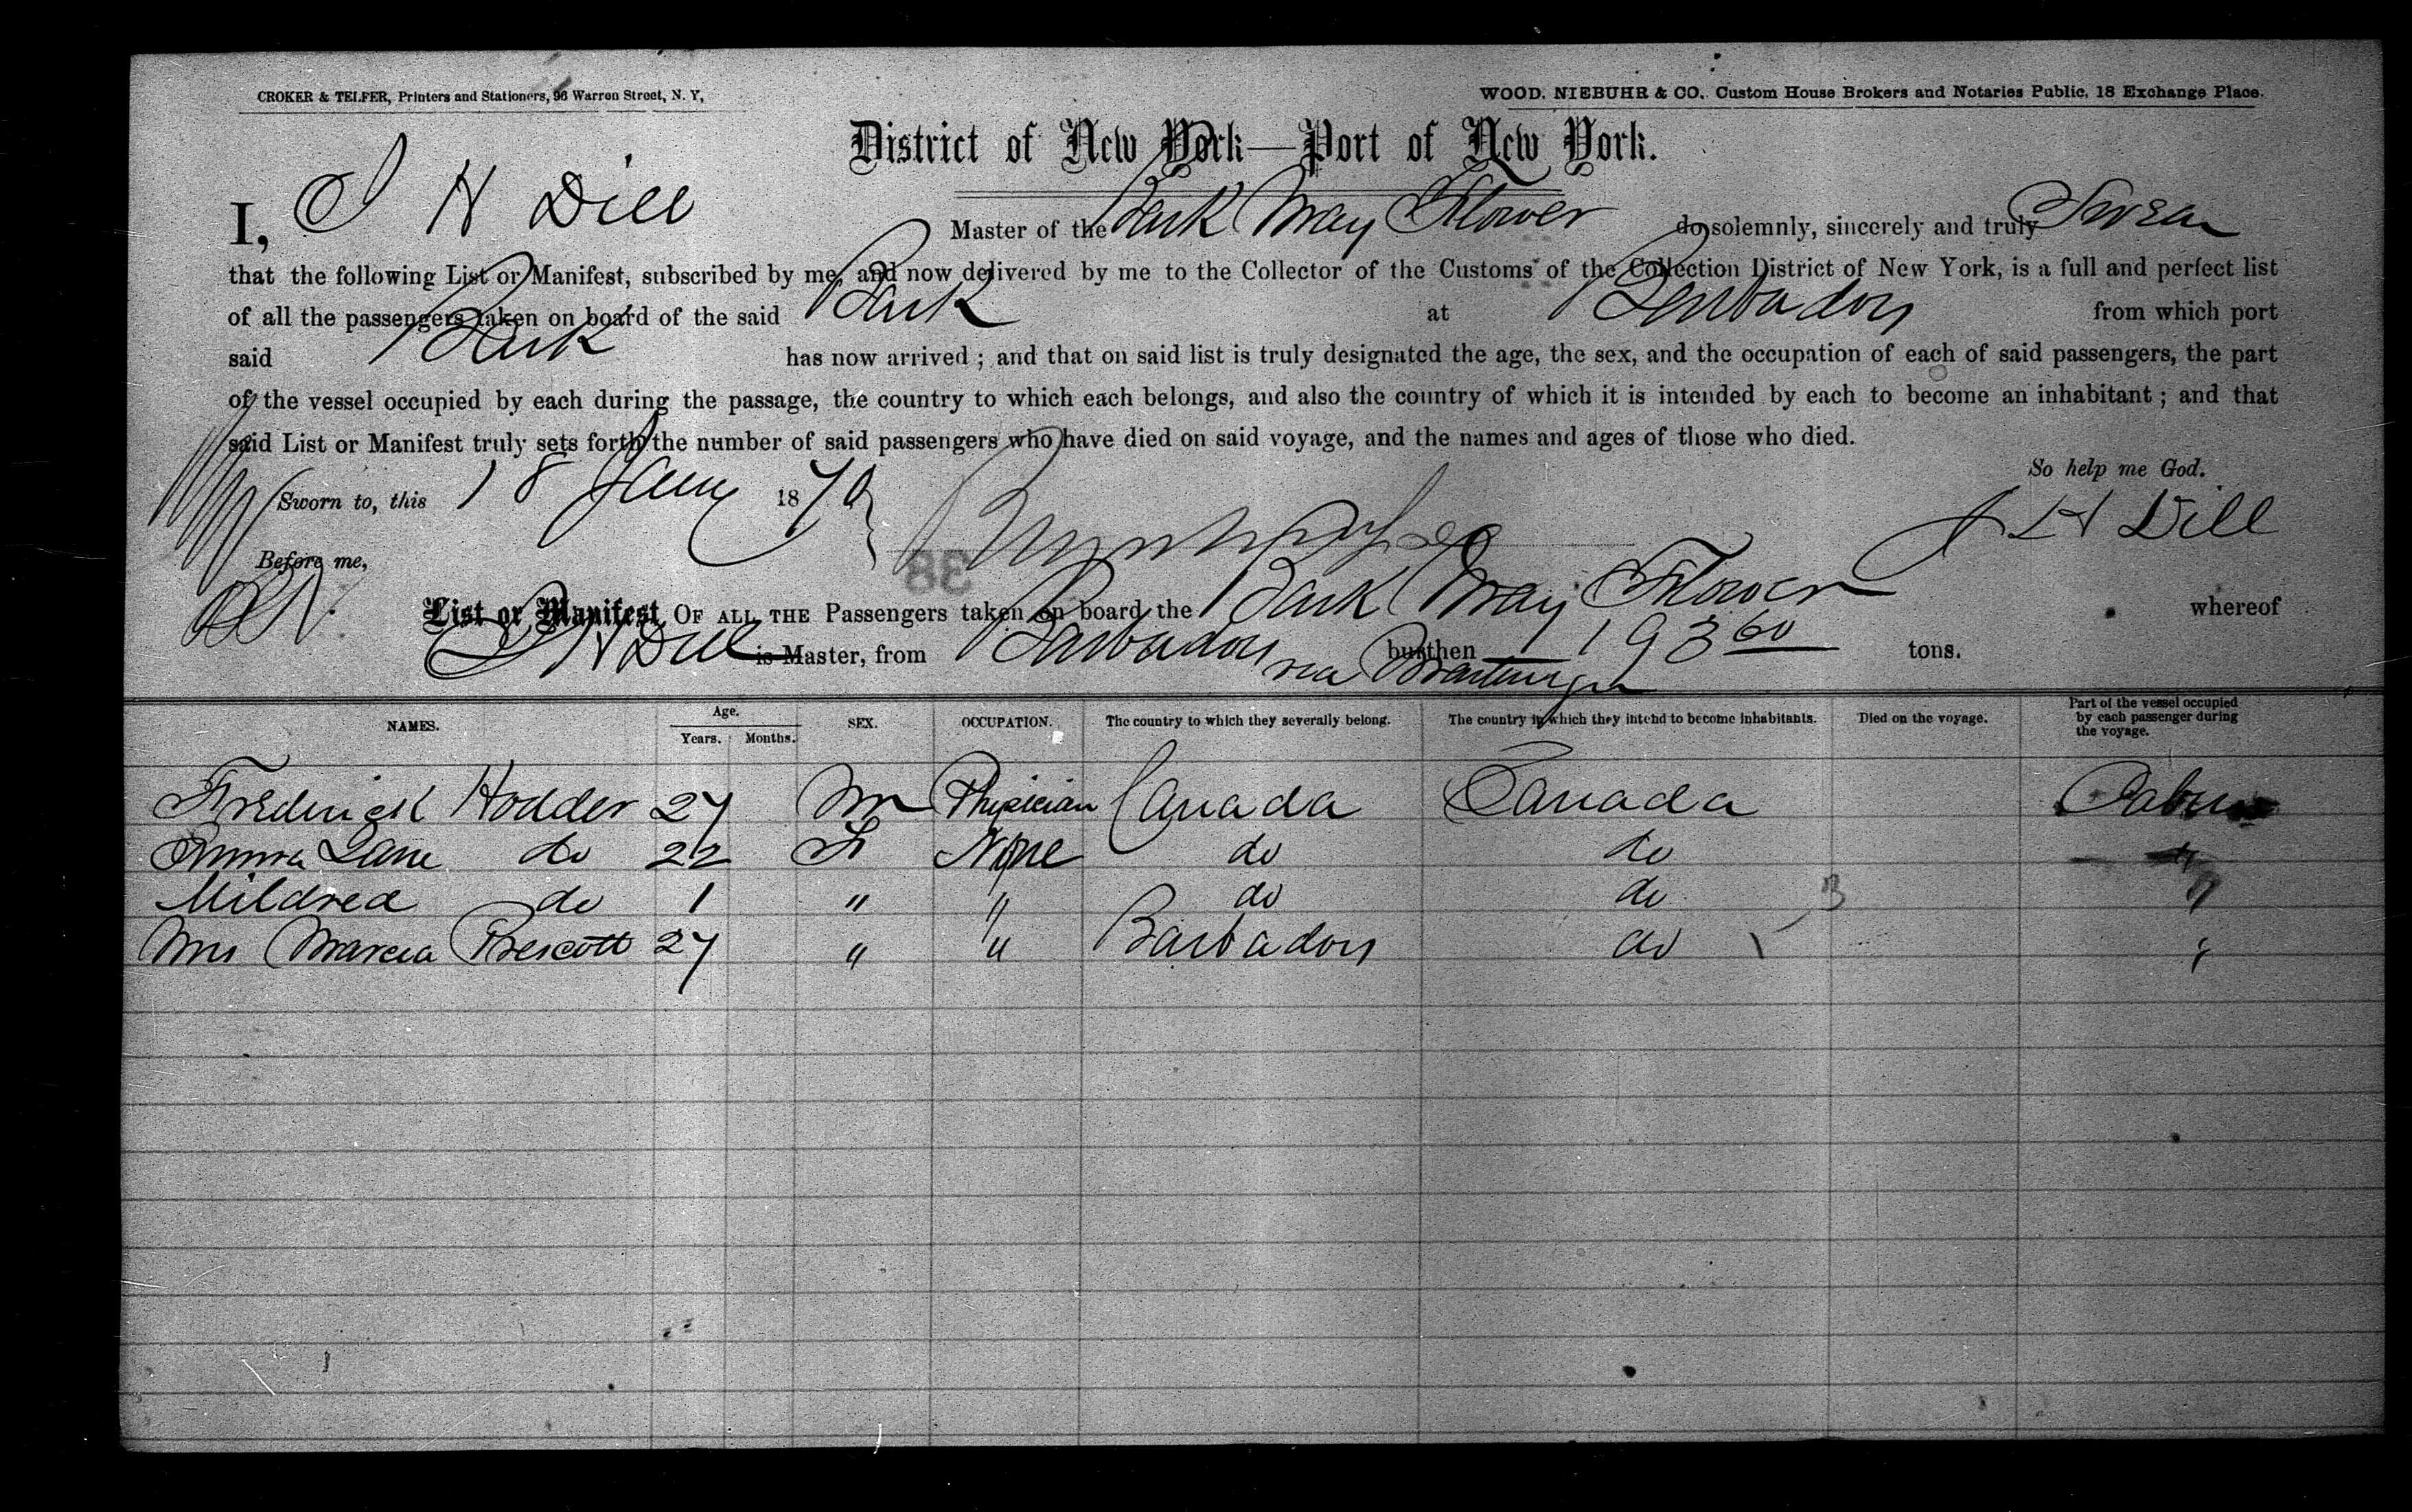 CROKER & TELFER, Printers and Stationers, 96 Warren Street, N. Y,
WOOD, NIEBUHR & CO., Custom House Brokers and Notaries Public, 18 Exchange Place.
District of New York—Port of New York.
I, J H Dill Master of the Bark May Flower do solemnly, sincerely and truly Swear
that the following List or Manifest, subscribed by me, and now delivered by me to the Collector of the Customs of the Collection District of New York, is a full and perfect list
of all the passengers taken on board of the said Bark at Barbados from which port
said Bark has now arrived ; and that on said list is truly designated the age, the sex, and the occupation of each of said passengers, the part
of the vessel occupied by each during the passage, the country to which each belongs, and also the country of which it is intended by each to become an inhabitant ; and that
said List or Manifest truly sets forth the number of said passengers who have died on said voyage, and the names and ages of those who died.
So help me God.
Sworn to, this 18 Jany 1870
J H Dill
Before me,
88
List or Manifest OF ALL THE Passengers taken on board the Bark May Flower whereof
J H Dill is Master, from Barbados via burthen 193 60 tons.
NAMES. Age. Years. Months. SEX. OCCUPATION. The country to which they severally belong. The country in which they intend to become inhabitants. Died on the voyage. Part of the vessel occupied by each passenger during the voyage.
Frederick Hodder 27 M Physician Canada Canada Cabin
Emma Jane do 22 F None do do "
Mildred do 1 " " do do "
Mrs Marcia Prescott 27 " " Barbados do "